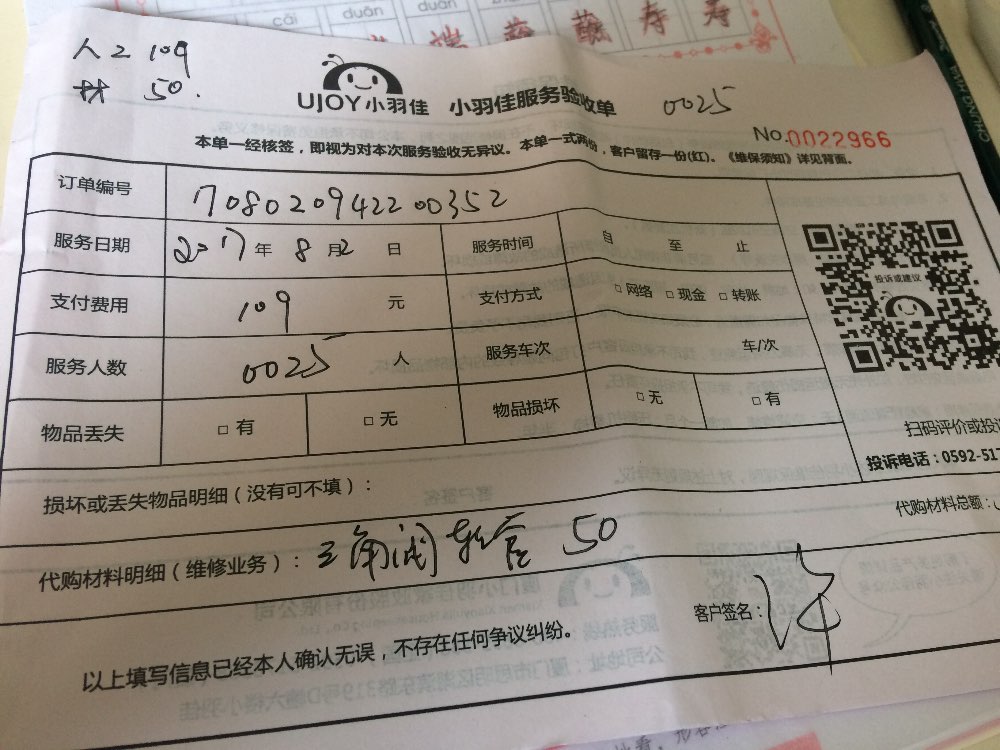 cài duān
端 蘸 蘸 寿 寿
人工 109
材 50.
UJOY小羽佳 小羽佳服务验收单 0025
No.0022966
本单一经核签，即视为对本次服务验收无异议。本单一式两份，客户留存一份(红)。《维保须知》详见背面。
订单编号 70802094220 0352
服务日期 2017 年 8 月 2 日 服务时间 自 至 止
支付费用 109 元 支付方式 □ 网络 □ 现金 □ 转账
服务人数 0025 人 服务车次 车/次
物品丢失 □ 有 □ 无 物品损坏 □ 无 □ 有
投诉或建议
扫码评价或投
投诉电话：0592-517
损坏或丢失物品明细（没有可不填）：
代购材料总额：
代购材料明细（维修业务）：三角阀 软管 50
客户签名：
以上填写信息已经本人确认无误，不存在任何争议纠纷。